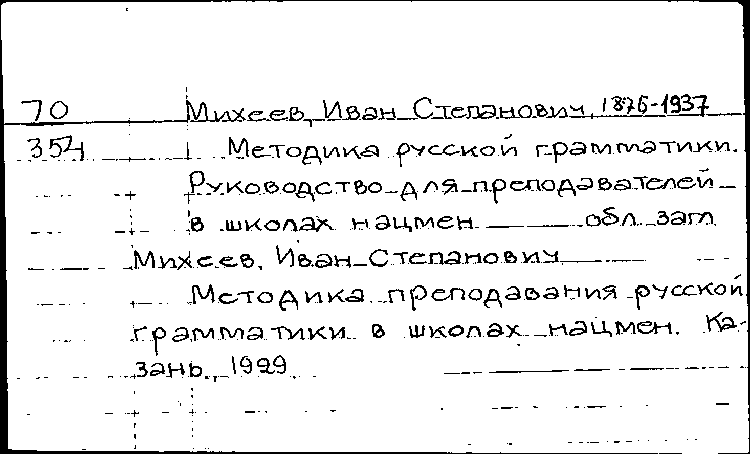 70 Михеев, Иван Степанович, 1876-1937
354 Методика русской грамматики.
Руководство для преподавателей
в школах нацмен обл. загл
Михеев, Иван Степанович
Методика преподавания русской
грамматики в школах нацмен. Ка-
зань, 1929